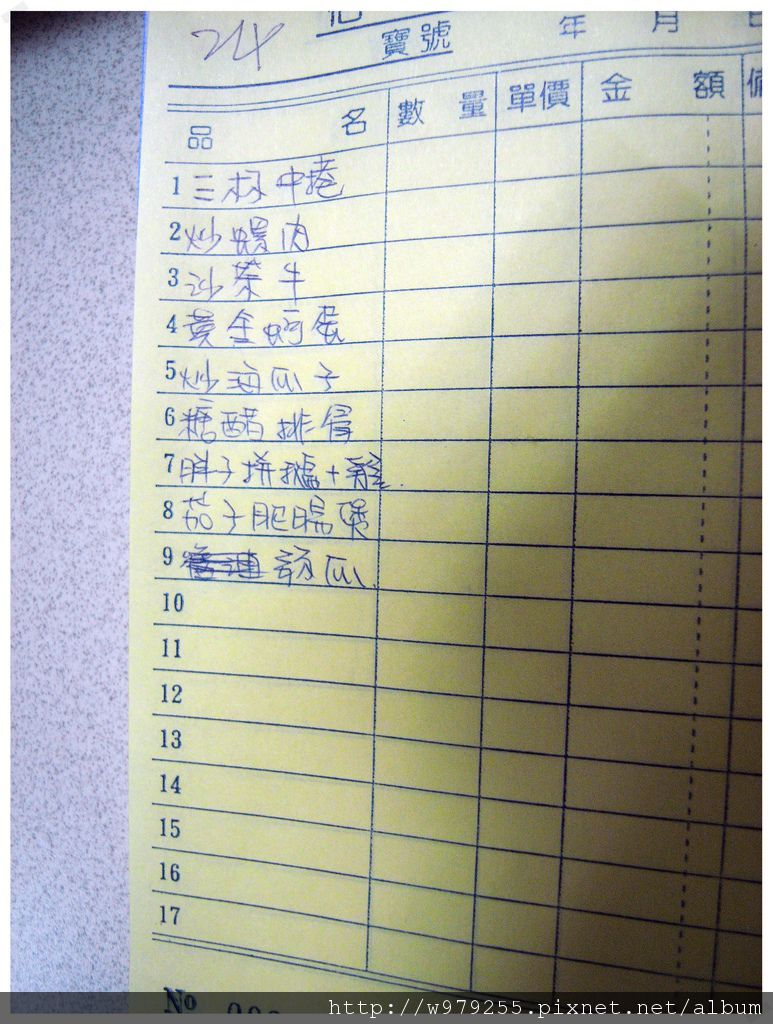 24
寶號 年 月
品 名 數 量 單價 金 額 備
1 三杯中捲
2 炒螺肉
3 沙茶牛
4 黃金蚵蛋
5 炒海瓜子
6 糖醋排骨
7 胖子拼
8 茄子肥腸煲
9 瓜
10
11
12
13
14
15
16
17
No
http://w979255.pixnet.net/album